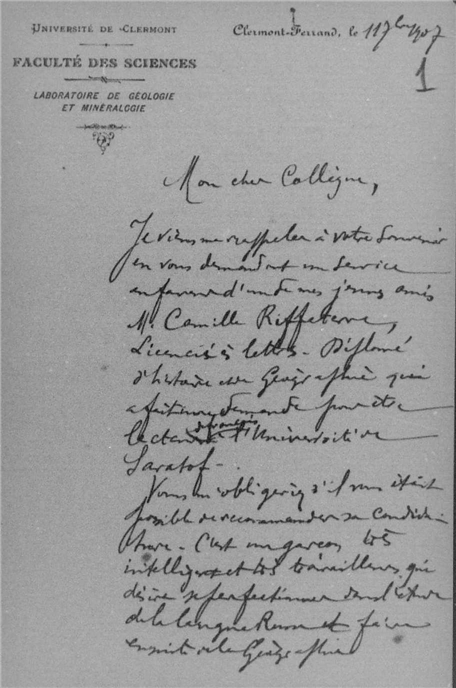 UNIVERSITÉ DE CLERMONT
FACULTÉ DES SCIENCES
LABORATOIRE DE GÉOLOGIE
ET MINÉRALOGIE
Clermont-Ferrand, le 11 7bre 1907
1
Mon cher Collègue,
Je viens me rappeler à votre souvenir
en vous demandant un service
en faveur d'un de mes jeunes amis
M. Camille Riffeterre,
Licencié ès lettres - Diplomé
d'histoire et de Géographie qui
a fait une demande pour être
lecteur de français à l'Université de
Saratof -
Vous m'obligeriez s'il vous était
possible de recommander sa candida-
ture - C'est un garçon très
intelligent et très travailleur, qui
désire se perfectionner dans l'étude
de la langue Russe et faire
ensuite de la Géographie